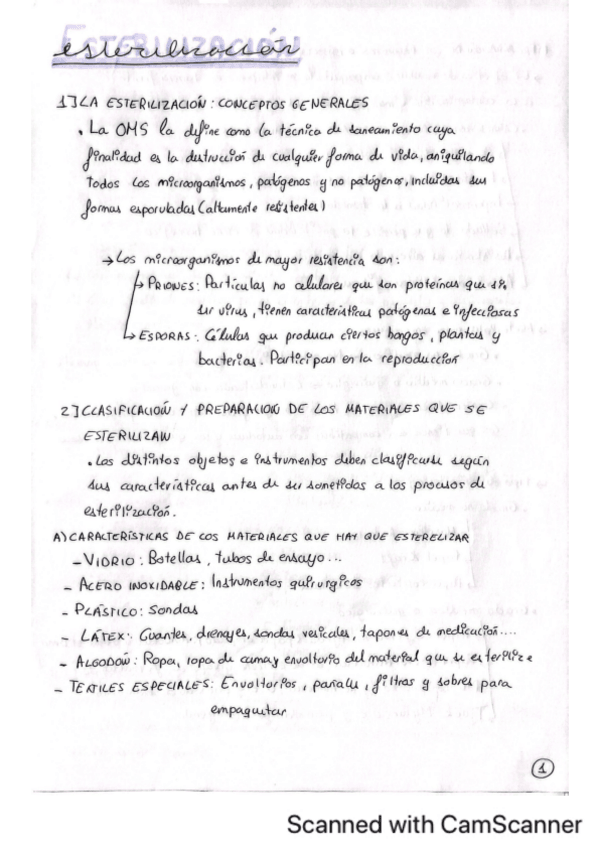 esterilización
1] LA ESTERILIZACIÓN: CONCEPTOS GENERALES
• La OMS la define como la técnica de saneamiento cuya
finalidad es la destrucción de cualquier forma de vida, aniquilando
todos los microorganismos, patógenos y no patógenos, incluidas sus
formas esporuladas (altamente resistentes)
→ Los microorganismos de mayor resistencia son:
→ PRIONES: Partículas no celulares que son proteínas que sin
ser virus, tienen características patógenas e infecciosas
→ ESPORAS: Células que producen ciertos hongos, plantas y
bacterias. Participan en la reproducción
2] CLASIFICACIÓN Y PREPARACIÓN DE LOS MATERIALES QUE SE
ESTERILIZAN
• Los distintos objetos e instrumentos deben clasificarse según
sus características antes de ser sometidos a los procesos de
esterilización.
A) CARACTERÍSTICAS DE LOS MATERIALES QUE HAY QUE ESTERELIZAR
- VIDRIO: Botellas, tubos de ensayo...
- ACERO INOXIDABLE: Instrumentos quirurgicos
- PLÁSTICO: Sondas
- LÁTEX: Guantes, drenajes, sondas vesicales, tapones de medicación....
- ALGODÓN: Ropa, ropa de cama y envoltorio del material que se esterilize
- TEXTILES ESPECIALES: Envoltorios, pañales, filtros y sobres para
empaquetar
1
Scanned with CamScanner